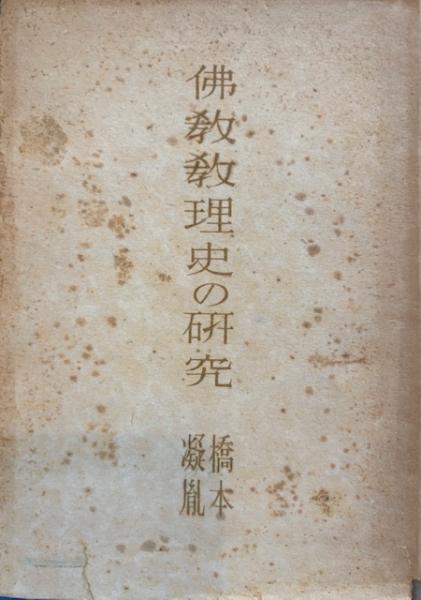 佛教教理史の研究
橋本
凝胤